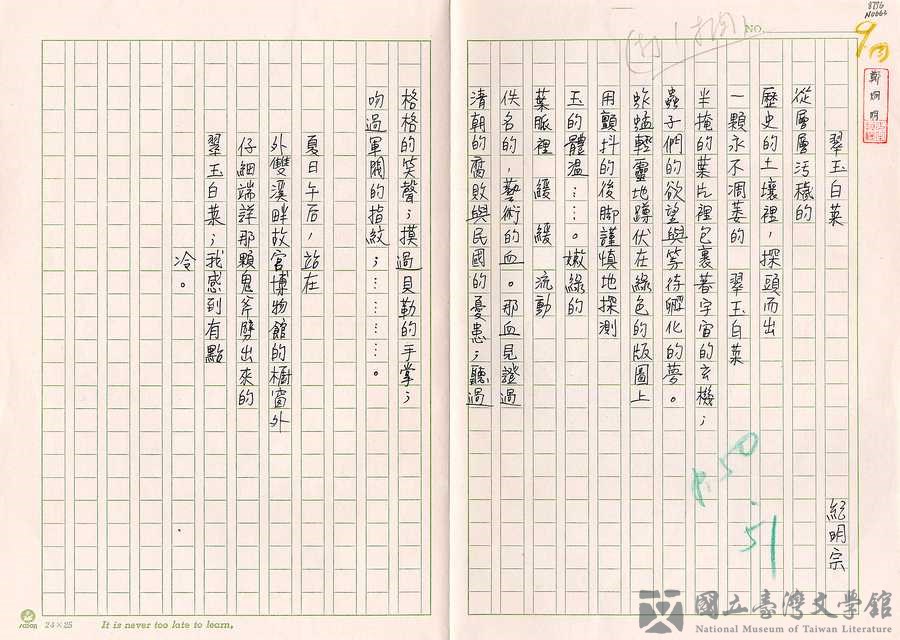 8776
N0062
9月
NO.
鄭炯明
翠玉白菜
紀明宗
從層層污穢的
歷史的土壤裡，探頭而出
一顆永不凋萎的　翠玉白菜
半掩的葉片裡包裹著宇宙的玄機；
蟲子們的欲望與等待孵化的夢。
蚱蜢輕靈地蹲伏在綠色的版圖上
用顫抖的後脚謹慎地探測
玉的體溫……。嫩綠的
葉脈裡　緩　緩　流動
佚名的，藝術的血。那血見證過
清朝的腐敗與民國的憂患；聽過
格格的笑聲；摸過貝勒的手掌；
吻過軍閥的指紋；…………。
夏日午后，站在
外雙溪畔故宮博物館的櫥窗外
仔細端詳那顆鬼斧劈出來的
翠玉白菜；我感到有點
冷。
P.50
51
24×25
It is never too late to learn.
國立臺灣文學館
National Museum of Taiwan Literature